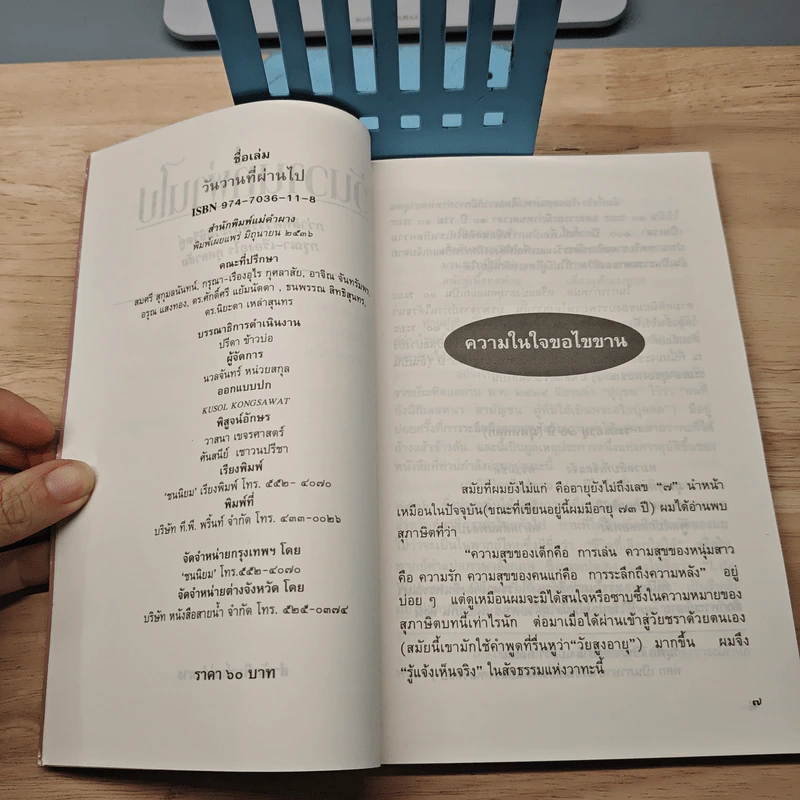 ชื่อเล่ม
วันวานที่ผ่านไป
ISBN 974-7036-11-8
สำนักพิมพ์แม่คำผาง
พิมพ์เผยแพร่ มิถุนายน ๒๕๓๖
คณะที่ปรึกษา
สมศรี สุกุมลนันทน์, กรุณา-เรืองอุไร กุศลาสัย, อาจิณ จันทรัมพร,
อรุณ แสงทอง, ดร.ศักดิ์ศรี แย้มนัดดา , ธนพรรณ สิทธิสุนทร,
ดร.นิยะดา เหล่าสุนทร
บรรณาธิการดำเนินงาน
ปรีดา ข้าวบ่อ
ผู้จัดการ
นวลจันทร์ หน่วยสกุล
ออกแบบปก
KUSOL KONGSAWAT
พิสูจน์อักษร
วาสนา เขจรศาสตร์
ศันสนีย์ เชาวนปรีชา
เรียงพิมพ์
'ชนนิยม' เรียงพิมพ์ โทร. ๕๕๒- ๔๐๗๐
พิมพ์ที่
บริษัท ที.พี. พริ้นท์ จำกัด โทร. ๔๓๓-๐๐๒๖
จัดจำหน่ายกรุงเทพฯ โดย
'ชนนิยม' โทร.๕๕๒-๔๐๗๐
จัดจำหน่ายต่างจังหวัด โดย
บริษัท หนังสือสายน้ำ จำกัด โทร. ๕๒๕-๐๓๗๔
ราคา ๖๐ บาท
ความในใจขอไขขาน
สมัยที่ผมยังไม่แก่ คืออายุยังไม่ถึงเลข "๗" นำหน้า
เหมือนในปัจจุบัน(ขณะที่เขียนอยู่นี้ผมมีอายุ ๗๓ ปี) ผมได้อ่านพบ
สุภาษิตที่ว่า
"ความสุขของเด็กคือ การเล่น ความสุขของหนุ่มสาว
คือ ความรัก ความสุขของคนแก่คือ การระลึกถึงความหลัง" อยู่
บ่อย ๆ แต่ดูเหมือนผมจะมิได้สนใจหรือซาบซึ้งในความหมายของ
สุภาษิตบทนี้เท่าไรนัก ต่อมาเมื่อได้ผ่านเข้าสู่วัยชราด้วยตนเอง
(สมัยนี้เขามักใช้คำพูดที่รื่นหูว่า"วัยสูงอายุ") มากขึ้น ผมจึง
"รู้แจ้งเห็นจริง" ในสัจธรรมแห่งวาทะนี้
๗